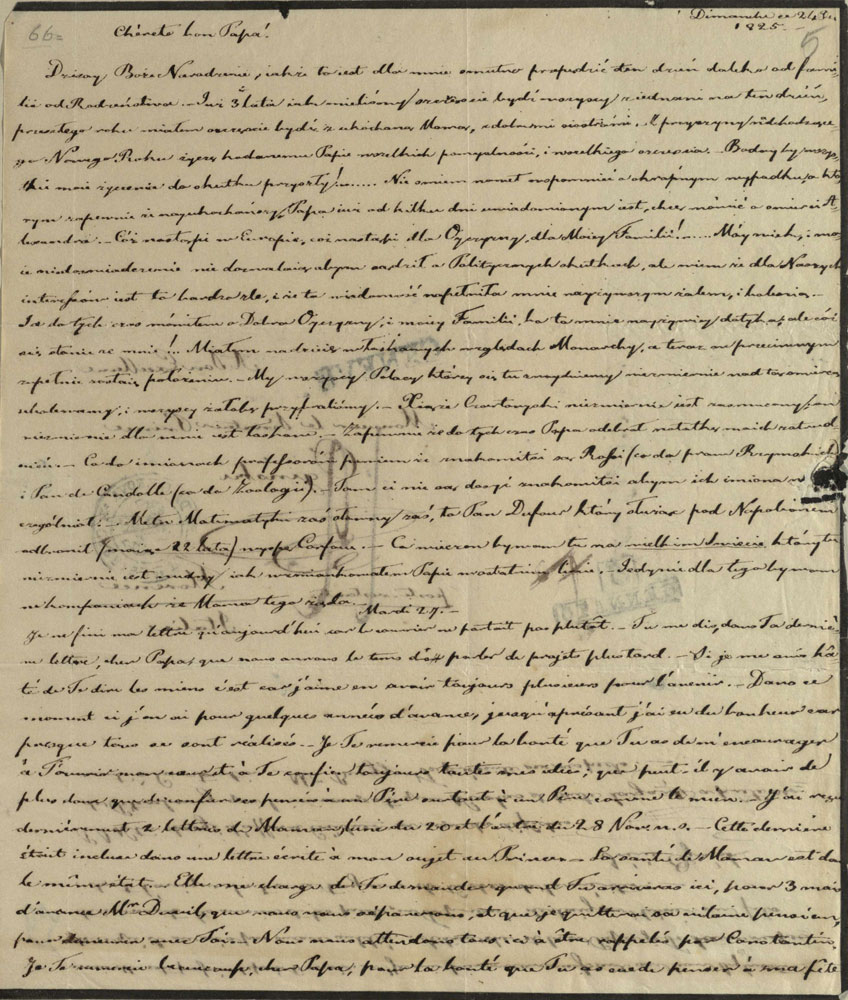 66=
Dimanche ce 25 Xbre
1825.
5
Chèreté bon Papa!
Dzisay Boże Narodzenie, iakże to iest dla mnie smutno przepędzić ten dzień daleko od fami-
lii od Radziwiłłow. – Iuż 3 lata iak mieliśmy szczęscie bydź wszyscy ziednani na ten dzień,
przeszłego roku miałem szczęscie bydź z ukochaną Mamą, z dobremi siostrami. Z przyczyny nadchodzące-
go Nowego Roku życzę kochanemu Papie wszelkich pomyslności, i wszelkiego szczescia. – Bodayby wszys-
tkie moie życzenie do skutku przyszły!..... Nie smiem nawet wspomnieć o okropnym wypadku, o któ-
rym zapewnie iż nayukochańszy Papa iuż od kilku dni uwiadomionym iest, chcę mówić o smierci A-
lexandra. – Cóż nastąpi w Europie, coż nastąpi dla Oyczyzny, dla Moiey Familii!..... Móy wiek, i mo-
ie niedoswiadczenie nie dozwalaią abym sądził o Politycznych skutkach, ale wiem że dla Naszych
interesów iest to bardzo złe, i że ta wiadomość napełniła mnie nayżywszym żalem, i boleścią. –
Iż do tych czas mówiłem o Dobru Oyczyzny, i moiey Familii, bo to mnie nayżywiey dotyka, ale cóż
się stanie ze mną!!. Miałem nadzieię w łaskawych względach Monarchy, a teraz w przeciwnym
zupełnie zostaię położeniu. – My wszyscy Polacy którzy się tu znayduiemy niezmiernie nad tą smiercią
ubolewamy, i wszyscy żałobę przywdzialiśmy. – Xiąże Czartoryski niezmiernie iest zasmucony, on
niezmiernie dla mnie iest łaskaw. – Zapewnie że do tych czas Papa odebrał notatkę moich zatrud-
nień. – Co do imionach professorów powiem że znakomici są Rossi (co do prawa Rzymskich)
i Pan de Candolle (co do Zoologii). – Tamci nie są dosyć znakomici abym ich imiona wy-
szczególniał. – Metr Matematyki zaś dawny zaś, to Pan Dufour który służąc pod Napoleonem
odbronił (maiąc 22 lata) wyspę Corfou. – Co wieczor bywam tu na wielkim Swiecie który tu
niezmiernie iest nudny iak wzmiankowałem Papie w ostatnim liscie. – Iedynie dla tego bywam
w kompaniach że Mama tego żąda. – Mardi 27. –
Je ne fini ma lettre qu'aujourd'hui car le courrier ne partait pas plutôt. – Tu me dis, dans Ta derniè-
re lettre, cher Papa, que nous aurons le tems de parler de projets plus tard. – Si je me suis hâ-
té de Te dire les miens c'est car j'aime en avoir toujours plusieurs pour l'avenir. – Dans ce
moment ci j'en ai pour quelques années d'avance, jusqu'aprésant j'ai eu du bonheur car
presque tous se sont réalisés. – Je Te remercie pour la bonté que Tu as de m'encourager
à T'ouvrir mon cœur et à Te confier toujours toutes mes idées, que peut-il y avoir de
plus doux que de confier ses pensées à un Père surtout à un Père comme le mien. – J'ai reçu
dernièrement 2 lettres de Maman, l'une du 20 et l'autre du 28 Nov. n.s. – Cette dernière
était incluse dans une lettre écrite à mon sujet au Prince. – La santé de Maman est dans
le même état. Elle me charge de Te demander quand Tu arriveras ici, pour 3 mois
d'avance Mr Duvil, que nous nous séparerons, et que je quitterai sa pension,
pour demeurer avec Toi. – Nous nous attendons tous ici à être rappelés par Constantin,
Je Te remercie beaucoup, cher Papa, pour la bonté que Tu as eue de penser à ma fête